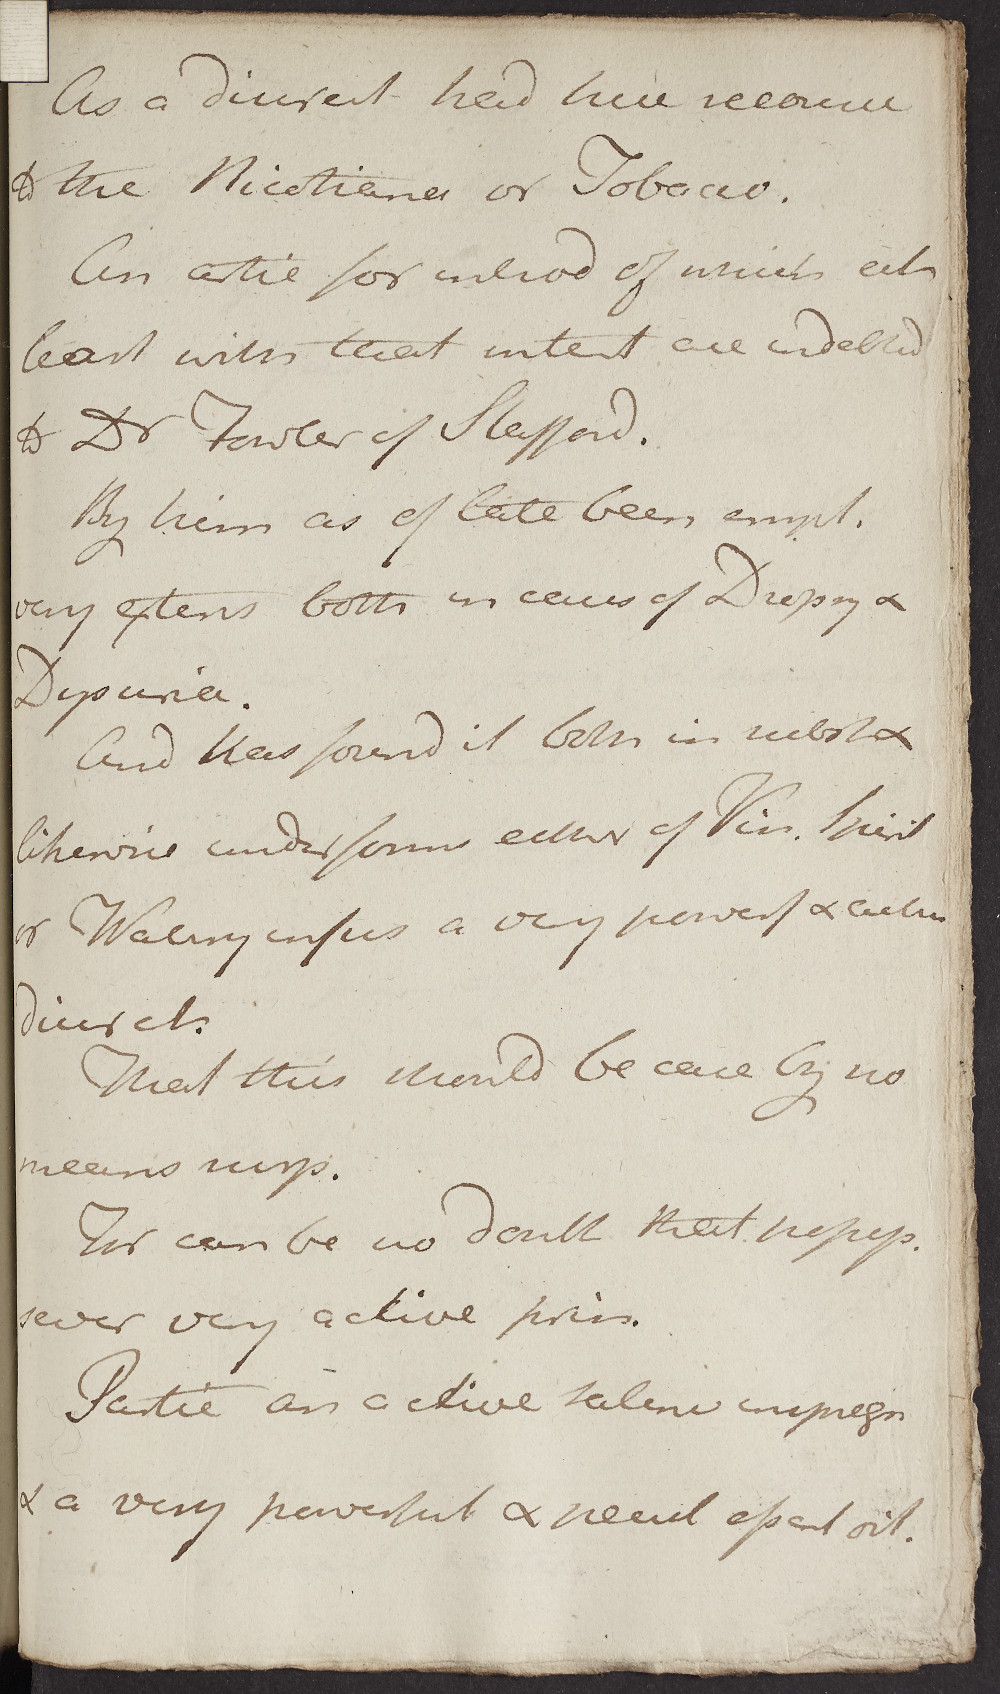 As a diuret had here recourse
to the Nicotiana or Tobacco.
An artic for introd of which at
least with that intent are indebted
to Dr Fowler of Stafford.
By him as of late been empl.
very extens both in cases of Dropsy &
Dysuria.
And has found it both in subst &
likewise under forms either of Vin. Spirit
or Watery infus a very powerf & active
diuret.
That this should be case by no
means surp.
For can be no doubt that possess.
sever very active prin.
Partic an active saline impregn
& a very powerful & peculi essent oil.